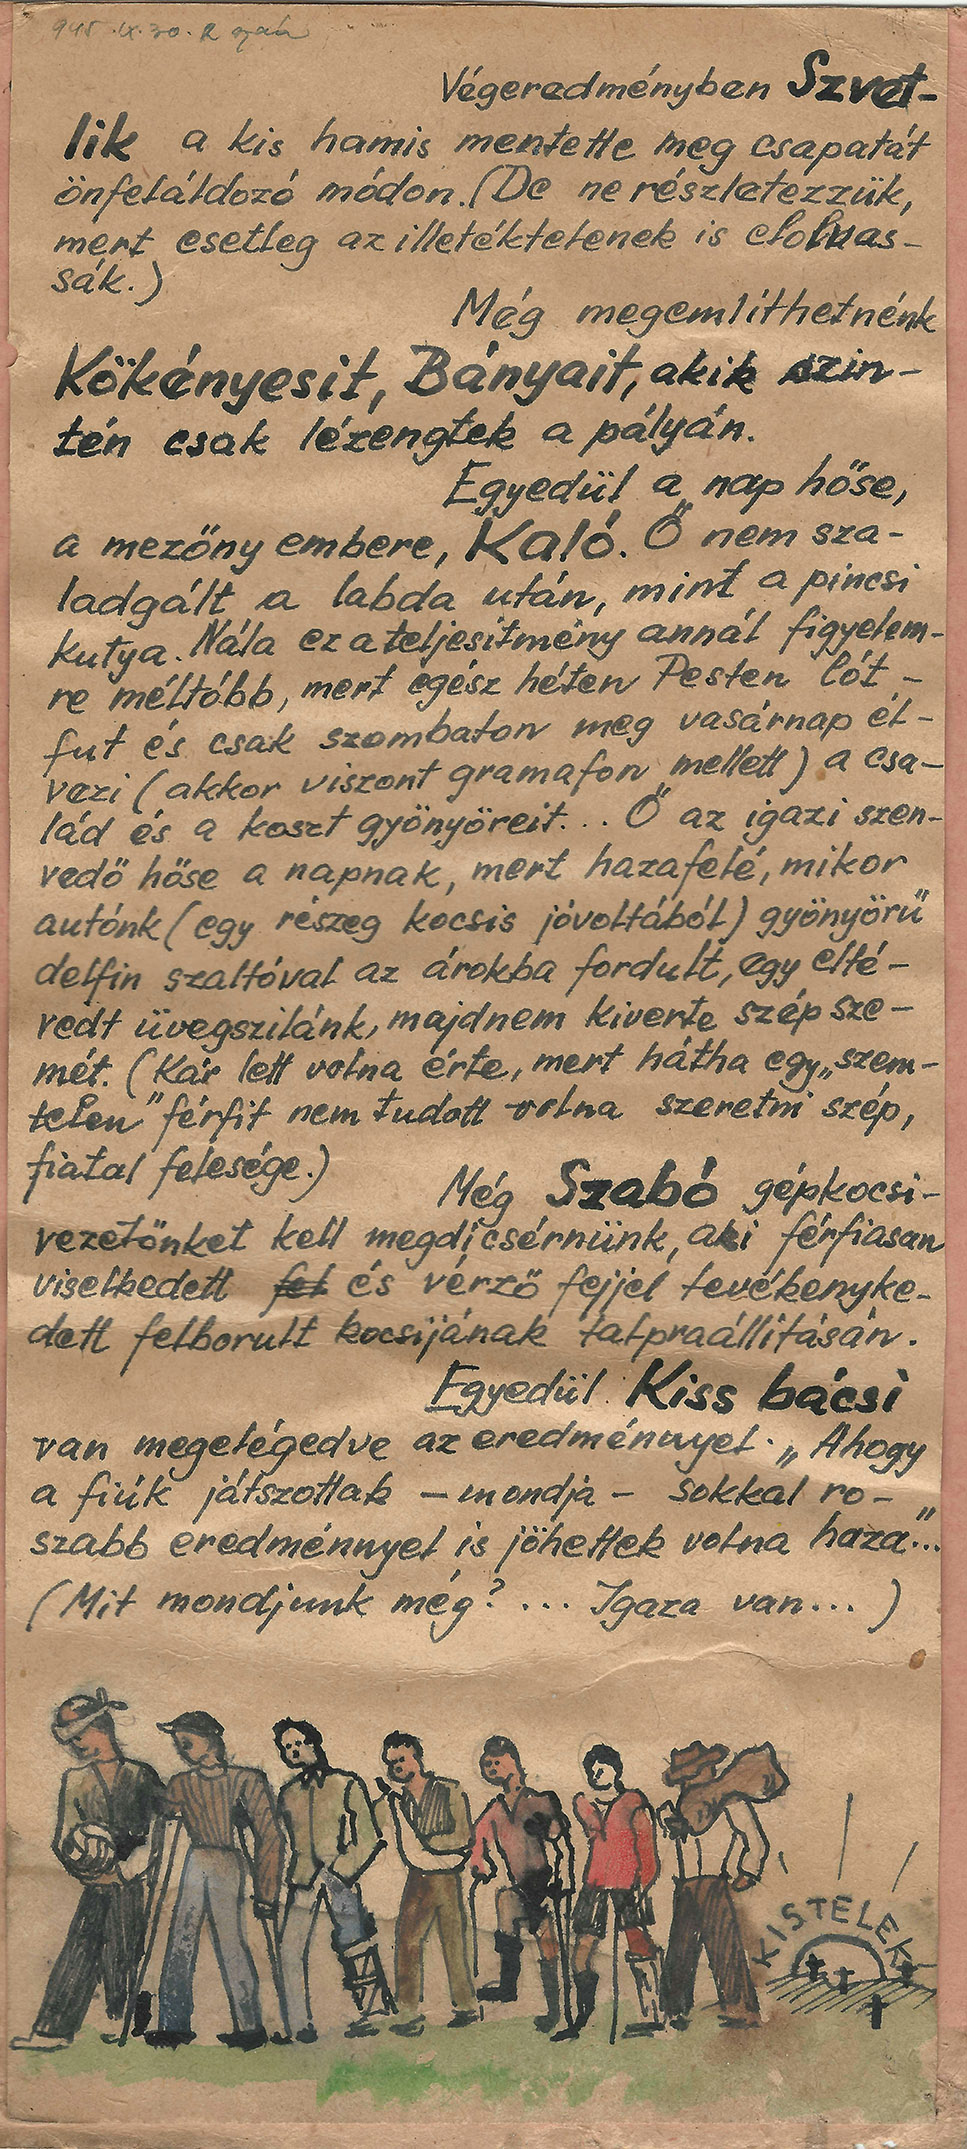 945. IX. 30. R szám
Végeredményben Szvet-
lik a kis hamis mentette meg csapatát
önfeláldozó módon. (De ne részletezzük,
mert esetleg az illetéktelenek is elolvas-
sák.)
Még megemlíthetnénk
Kökényesit, Bányait, akik szin-
tén csak lézengtek a pályán.
Egyedül a nap hőse,
a mezőny embere, Kaló. Ő nem sza-
ladgált a labda után, mint a pincsi
kutya. Nála ez a teljesitmény annál figyelem-
re méltóbb, mert egész héten Pesten lót-
fut és csak szombaton meg vasárnap él-
vezi (akkor viszont gramafon mellett) a csa-
lád és a koszt gyönyöreit... Ő az igazi szen-
vedő hőse a napnak, mert hazafelé, mikor
autónk (egy részeg kocsis jóvoltából) gyönyörű
delfin szaltóval az árokba fordult, egy elté-
vedt üvegszilánk, majdnem kiverte szép sze-
mét. (Kár lett volna érte, mert hátha egy „szem-
telen" férfit nem tudott volna szeretni szép,
fiatal felesége.)
Még Szabó gépkocsi-
vezetőnket kell megdícsérnünk, aki férfiasan
viselkedett fel és vérző fejjel tevékenyke-
dett felborult kocsijának talpraállításán.
Egyedül Kiss bácsi
van megelégedve az eredménnyel. „Ahogy
a fiúk játszottak – mondja – sokkal ro-
szabb eredménnyel is jöhettek volna haza"...
(Mit mondjunk még? ... Igaza van... )
KISTELEK